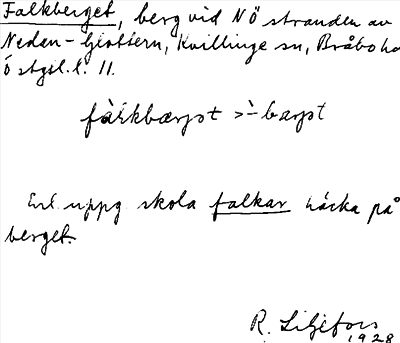 Falkberget, berg vid NÖ stranden av
Nedan-Glottern, Kvillinge sn, Bråbo hd
Ö stgtl. l. 11.
Enl. uppg skola falkar häcka på
berget.
R. Liljefors
1928